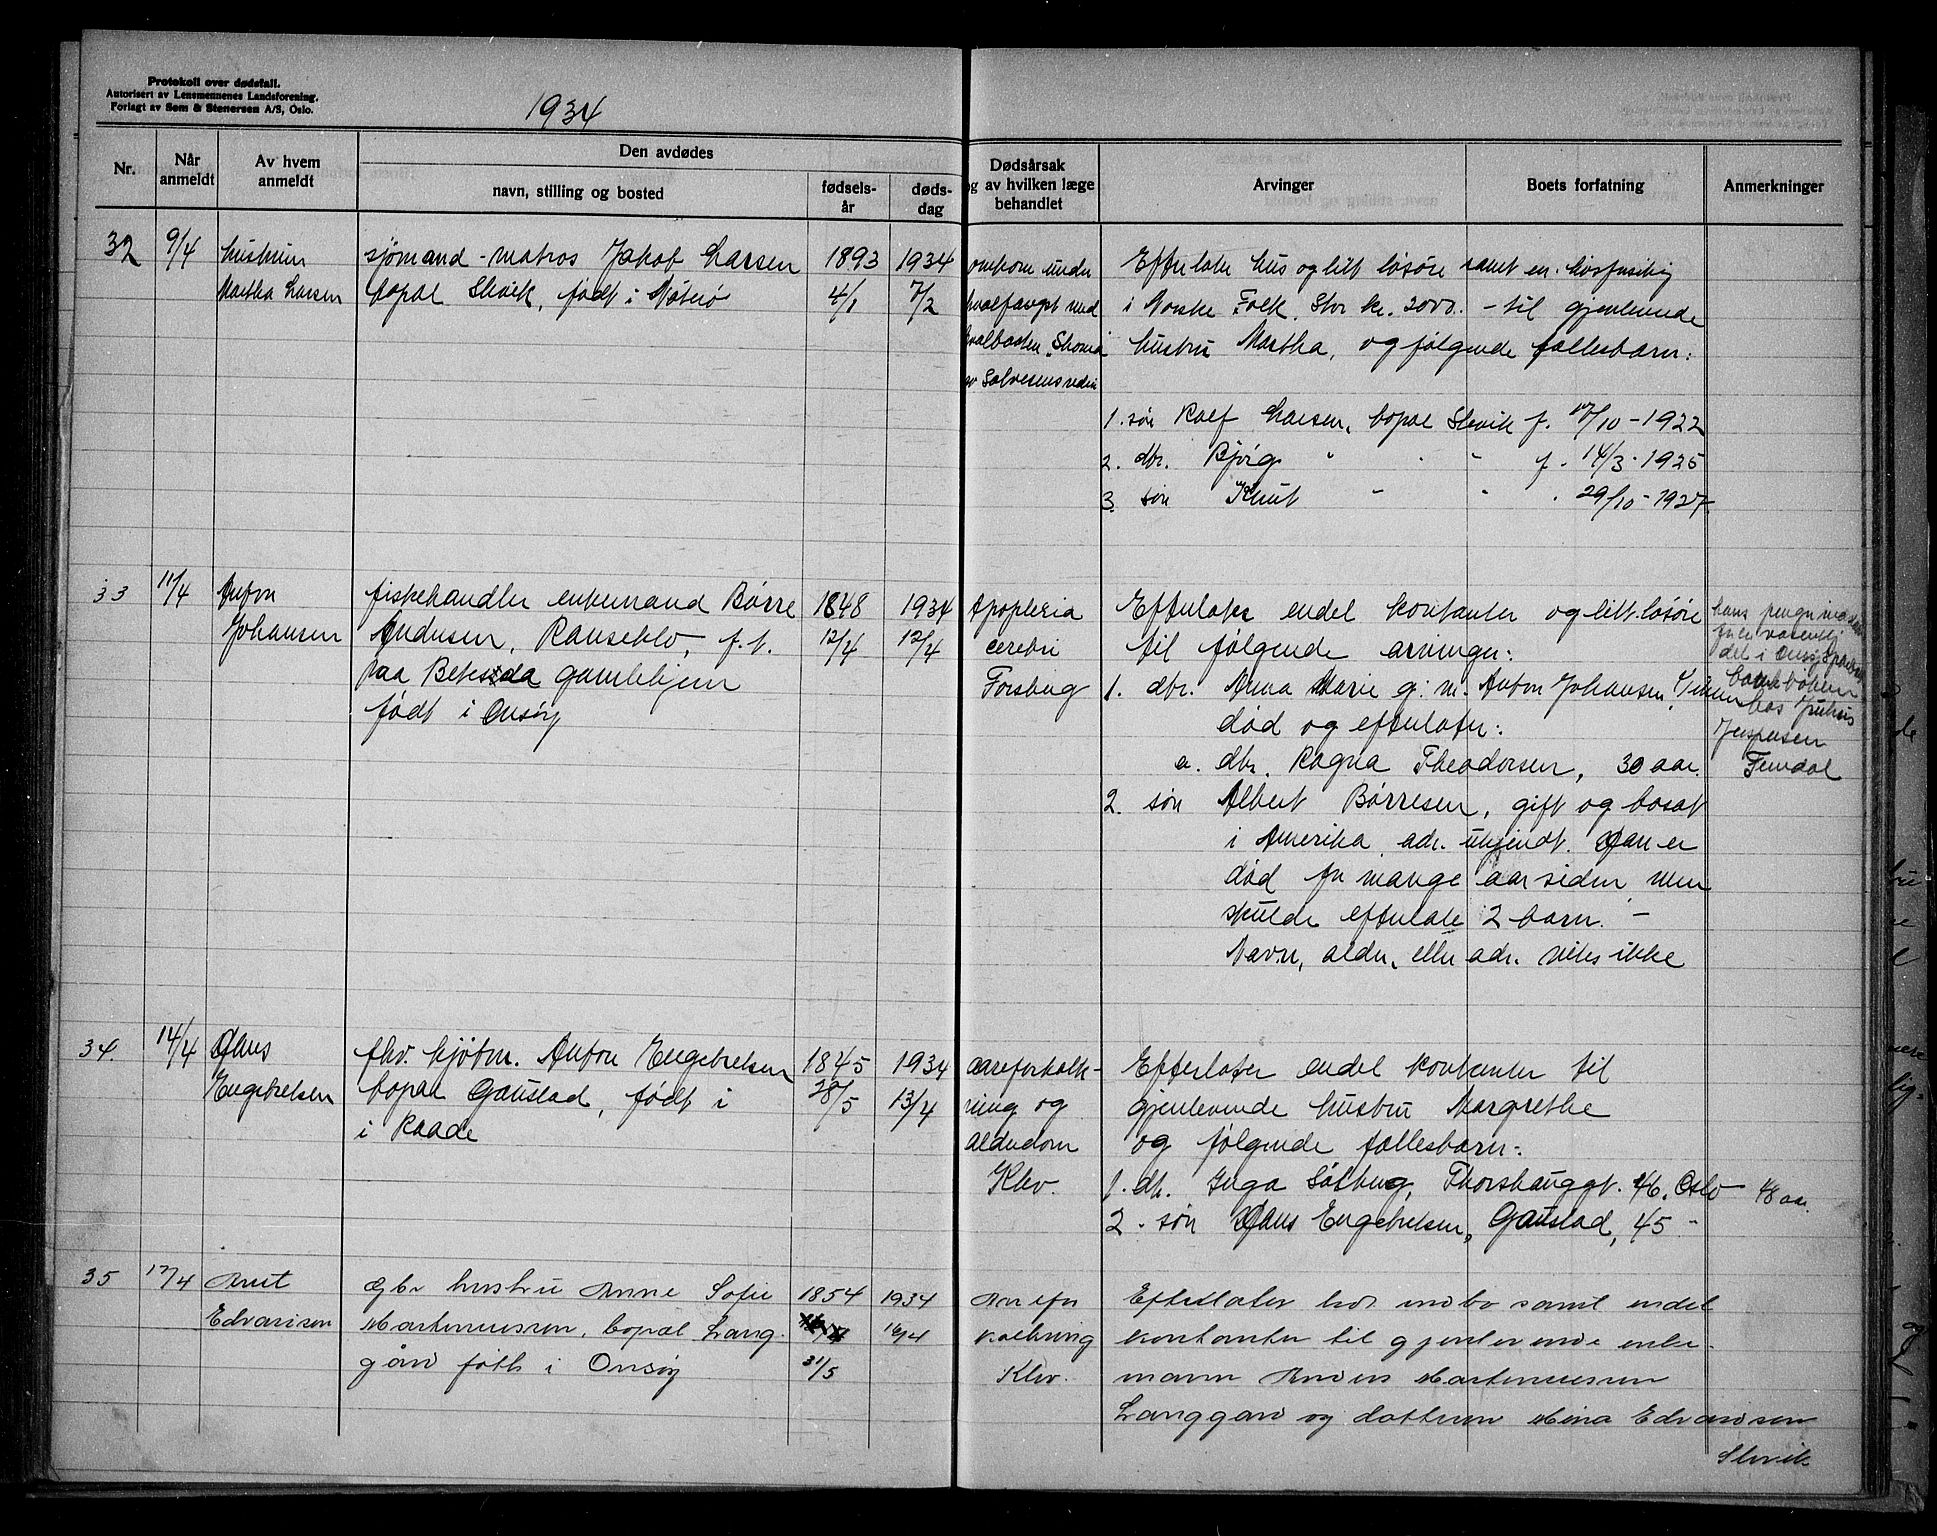 Protokoll over dødsfall.
Autorisert av Lensmennenes Landsforening.
Forlagt av Sem & Stenersen A/S, Oslo.
1934
Nr.
Når anmeldt
Av hvem anmeldt
Den avdødes
navn, stilling og bosted
fødsels-år
døds-dag
Dødsårsak
og av hvilken læge
behandlet
Arvinger
Boets forfatning
Anmerkninger
32 9/4 hustruen sjømand - matros Jakob Larsen 1893 1934 omkom under Efterlater hus og litt løsøre samt en
Martha Larsen bopæl Slevik, født i Nøterø 4/1 7/2 hvalfangst med i Norske Folk. Stor kr. 2000. - til gjenlevende
hvalbaaten hustru Martha, og følgende fællesbarn:
av Salvesens rederi
1. søn Rolf Larsen, bopæl Slevik f. 17/10 - 1922
2. dtr. Bjørg " " " f. 14/3 - 1925
3. søn Knut " " . 29/10 - 1927.
33 11/4 Anton fiskehandler enkemand Børre 1848 1934 Apoplexia Efterlater endel kontanter og litt løsøre
Johansen Andersen, Rauseklo, f. t. 12/4 12/4 cerebri til følgende arvinger:
paa Betesda gamlehjem Forsberg 1. dtr. Anna Marie g. m. Anton Johansen,
født i Onsøy død og efterlater:
a. dtr. Ragna Theodorsen, 30 aar.
2. søn Albert Børresen, gift og bosat
i Amerika, adr. ukjendt. Han er
død for mange aar siden, men
skulde efterlate 2 barn. -
Navn, alder, eller adr. vites ikke
hans penger
del i Onsøy
bankboken
hos Julius
Jespersen
Femdal
34. 14/4 Hans fhv. kjøbm. Anton Engebretsen 1845 1934 aareforkalk- Efterlater endel kontanter til
Engebretsen bopæl Gaustad, født i 28/5 13/4 ning og gjenlevende hustru Margrethe
i Raade alderdom og følgende fællesbarn:
Klev. 1. dtr. Inga Søtberg, Thorshauggt. 46. Oslo 48 aar.
2. søn Hans Engebretsen, Gaustad, 45 -
35 17/4 Anet Gbr hustru Anne Sofie 1854 1934 Aarefor Efterlater hus indbo samt endel
Edvardsen Martinussen, bopæl Lang- 16/4 kalkning kontanter til gjenlevende enke-
gård født i Onsøy 31/5 Klev. mann Anders Martinussen
Langgård og datteren Mina Edvardsen
Slevik